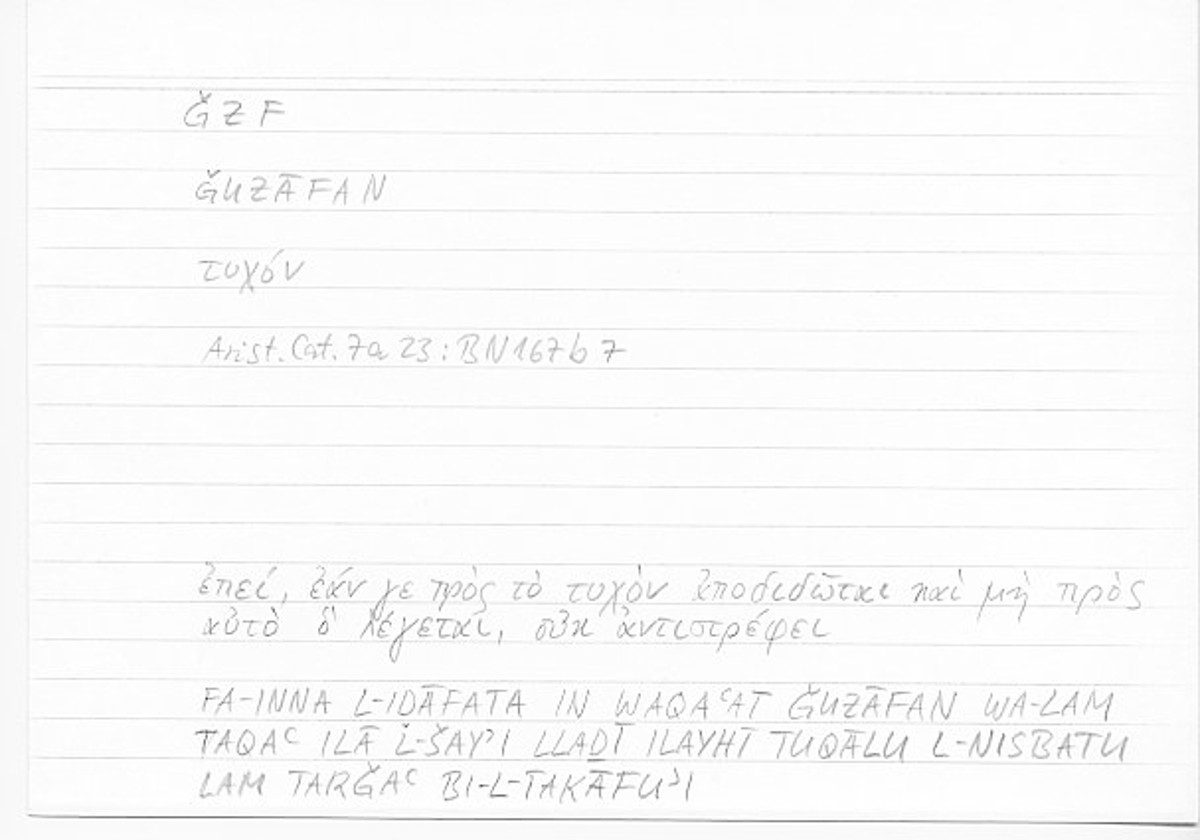 ǦZF
ǦUZĀFAN
τυχόν
Arist. Cat. 7a 23 : BN167b7
ἐπεί, ἐάν γε πρὸς τὸ τυχὸν ἀποδιδῶται καὶ μὴ πρὸς
αὐτὸ ὃ λέγεται, οὐκ ἀντιστρέφει
FA-INNA L-IḌĀFATA IN WAQAʿAT ǦUZĀFAN WA-LAM
TAQAʿ ILĀ L-ŠAYʾI LLAḎĪ ILAYHĪ TUQĀLU L-NISBATU
LAM TARǦAʿ BI-L-TAKĀFUʾI